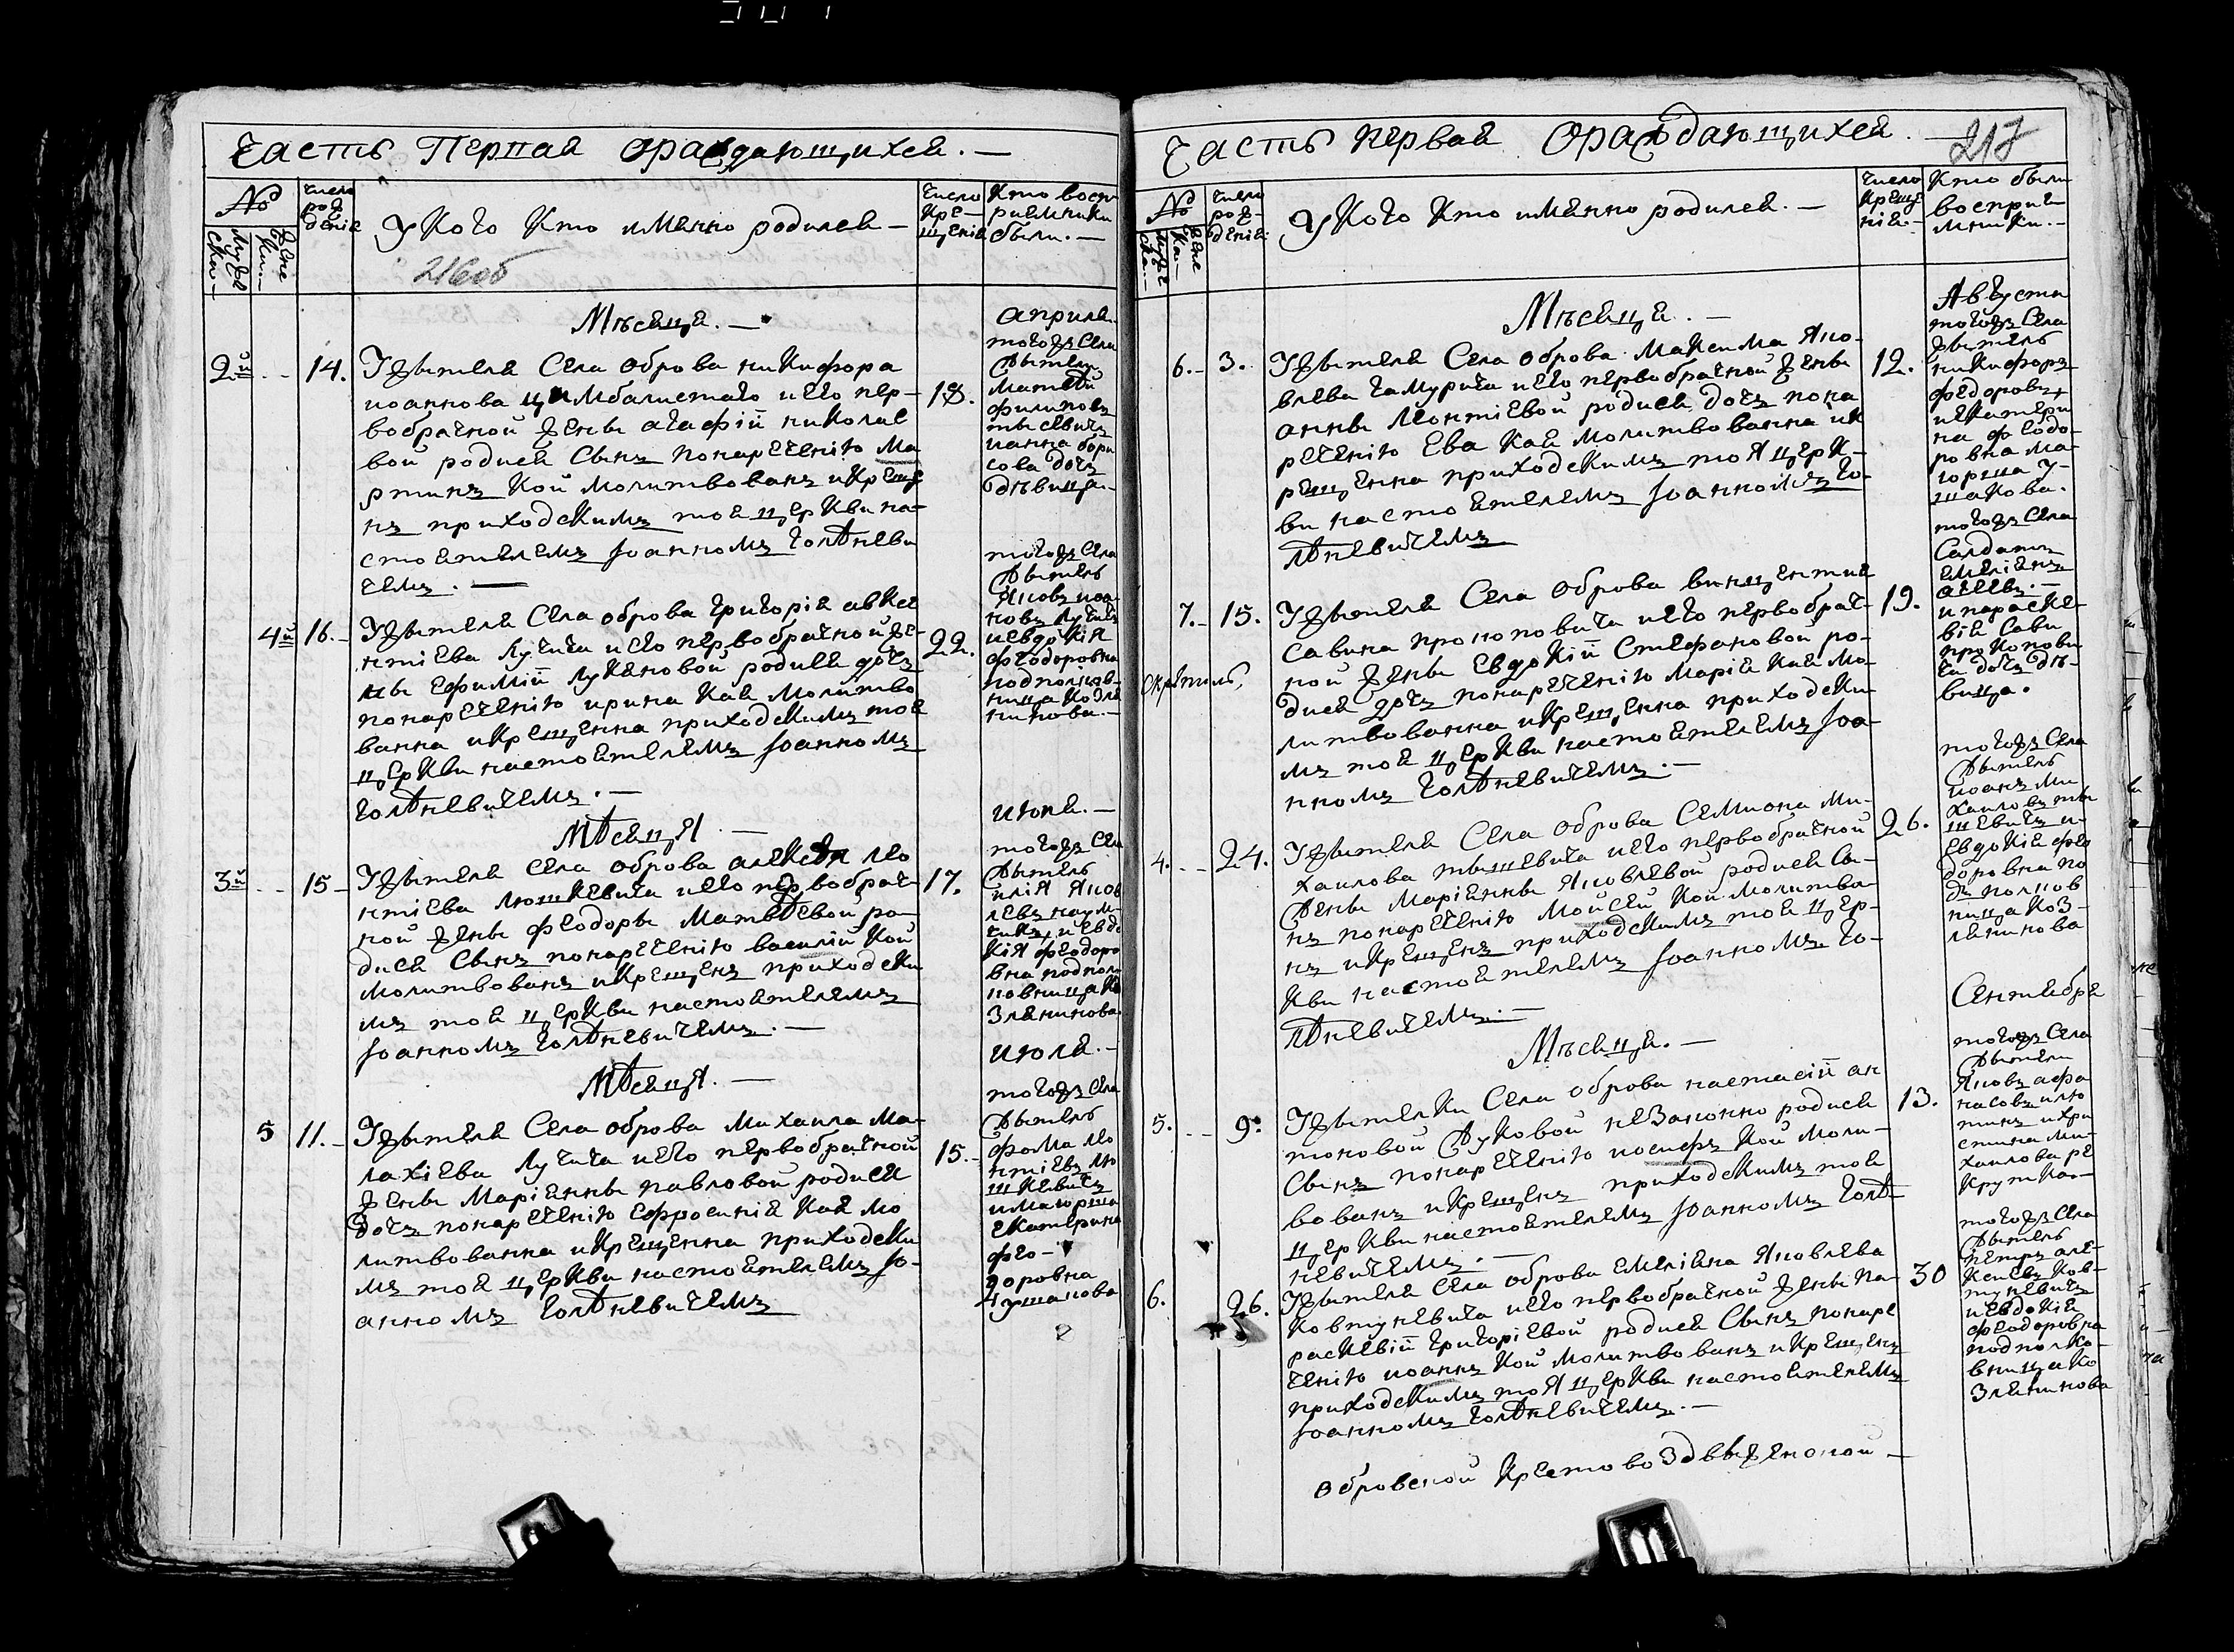 Часть Первая ораждающихся. —
№
Мужеска —
Женска —
число рождения
У Кого Кто именно родился —
число Крещения
Кто восприемники были. —
216об
Месяца. —
априля.
2й
14.
У Жителя Села оброва никифора
иоаннова цимбалистаго и его пер-
вобрачной Жены агафіи николае
вой родися Сынъ понареченію Ма
ртинъ Кой молитвованъ и Креще
нъ приходскимъ тоя церкви на-
стоятелемъ Іоанномъ Голѣневи
чемъ. —
18.
тогожъ Села
Жители
матфей
филиповъ
ианна бори
сова дочь
дѣвица.
4й
16. —
У Жителя Села оброва григорія авксе
нтіева Лучича и его первобрачной Же-
ны Ефиміи Лукяновой родися дочь
понареченію ирина Кая молитво
ванна и Крещенна приходскимъ тоя
церкви настоятелемъ Іоанномъ
Голѣневичемъ. —
22.
тогожъ Села
Житель
Яковъ иоа-
новъ Лучичъ
иевдокія
федоровна
подполков-
ница Козля
нинова. —
Мѣсяця. —
июня. —
3й
15 —
У Жителя Села оброва алексѣя лео
нтіева Люшкевича и его первобрач
ной Жены феодоры Матвѣевой ро-
дися Сынъ понареченію василій Кой
молитвованъ и Крещенъ приходски
мъ тоя церкви настоятелемъ
Іоанномъ Голѣневичемъ. —
17.
тогожъ Села
Житель
илія Яков
левъ наум-
чикъ, и евдо
кія феодоро
вна подпол-
ковница Ко
злянинова
Мѣсяця. —
июля. —
5
11. —
У Жителя Села оброва Михаила Ма-
лахіева Лучича и его первобрачной
Жены Маріанны павловой родися
дочь понареченію Ефросинія Кая мо
литвованна и Крещенна приходски
мъ тоя церкви настоятелемъ Іо-
анномъ Голѣневичемъ
15. —
тогожъ Села
Житель
фома лео
нтіевъ лю
шкевичъ
имаюрша
Екатерина
фео-
доровна
ушакова
Часть первая Ораждающихся. —
217
№
Мужеска —
Женска —
число рождения
У Кого Кто именно родился. —
число Крещения. —
Кто были восприемники. —
Месяца. —
Августа
6. —
3.
У Жителя Села оброва Максима Яко-
влева гамурича и его первобрачной Жены
анны Леонтіевой родися дочь пона
реченію Ева Кая молитвованна и К
рещенна приходскимъ тоя церк-
ви настоятелемъ Іоанномъ Го-
лѣневичемъ
12.
тогожъ Села
Житель
никифоръ
федоровъ
иекатери
на феодо-
ровна ма-
іорша у-
шакова.
7. —
15.
У Жителя Села оброва викентия
Савина прокоповича и его первобрач-
ной Жены Евдокіи Стефановой ро-
дися дочь понареченію Марія Кая мо-
литвованна и Крещенна приходски-
мъ тоя церкви настоятелемъ Іоа-
нномъ Голѣневичемъ. —
19.
тогожъ Села
Салдатъ
Емеліянъ
агеевъ. —
и параске-
вія Сави
прокопови
ча дочь дѣ-
вица.
4. —
24.
У Жителя Села оброва Семиона Ми-
хаилова тышевича и его первобрачной
Жены Маріанны Яковлевой родися Сы-
нъ понареченію Мойсей Кой молитвова-
нъ и Крещенъ приходскимъ тоя цер-
кви настоятелемъ Іоанномъ Го-
лѣневичемъ. —
26.
тогожъ Села
Житель
иоанъ Ми-
хаиловъ ты
шевичъ и
Евдокія фео
доровна по
дполков
ница Коз-
лянинова
Месяця. —
Сентября
5. —
9.
У Жителки Села оброва настасіи ан
тоновой Жуковой незаконно родися
Сынъ понареченію иосифъ Кой моли-
твованъ и Крещенъ приходскимъ тоя
церкви настоятелемъ Іоанномъ Голѣ-
невичемъ. —
13.
тогожъ Села
Жители
Яковъ афа
насовъ
и хри
стина ми-
хаилова ре
крутка —
6.
26.
У Жителя Села оброва Емеліяна Яковлева
Ковтуневича и его первобрачной Жены па-
раскевіи григоріевой родися Сынъ понаре
ченію иоаннъ Кой молитвованъ и Крещенъ
приходскимъ тоя церкви настоятелемъ
Іоанномъ Голѣневичемъ. —
30
тогожъ Села
Житель
петръ але-
ксеевъ Ков-
туневичъ
иевдокія
феодоровна
подполко-
вница Ко
злянинова
обровской Крестовоздвыженской —